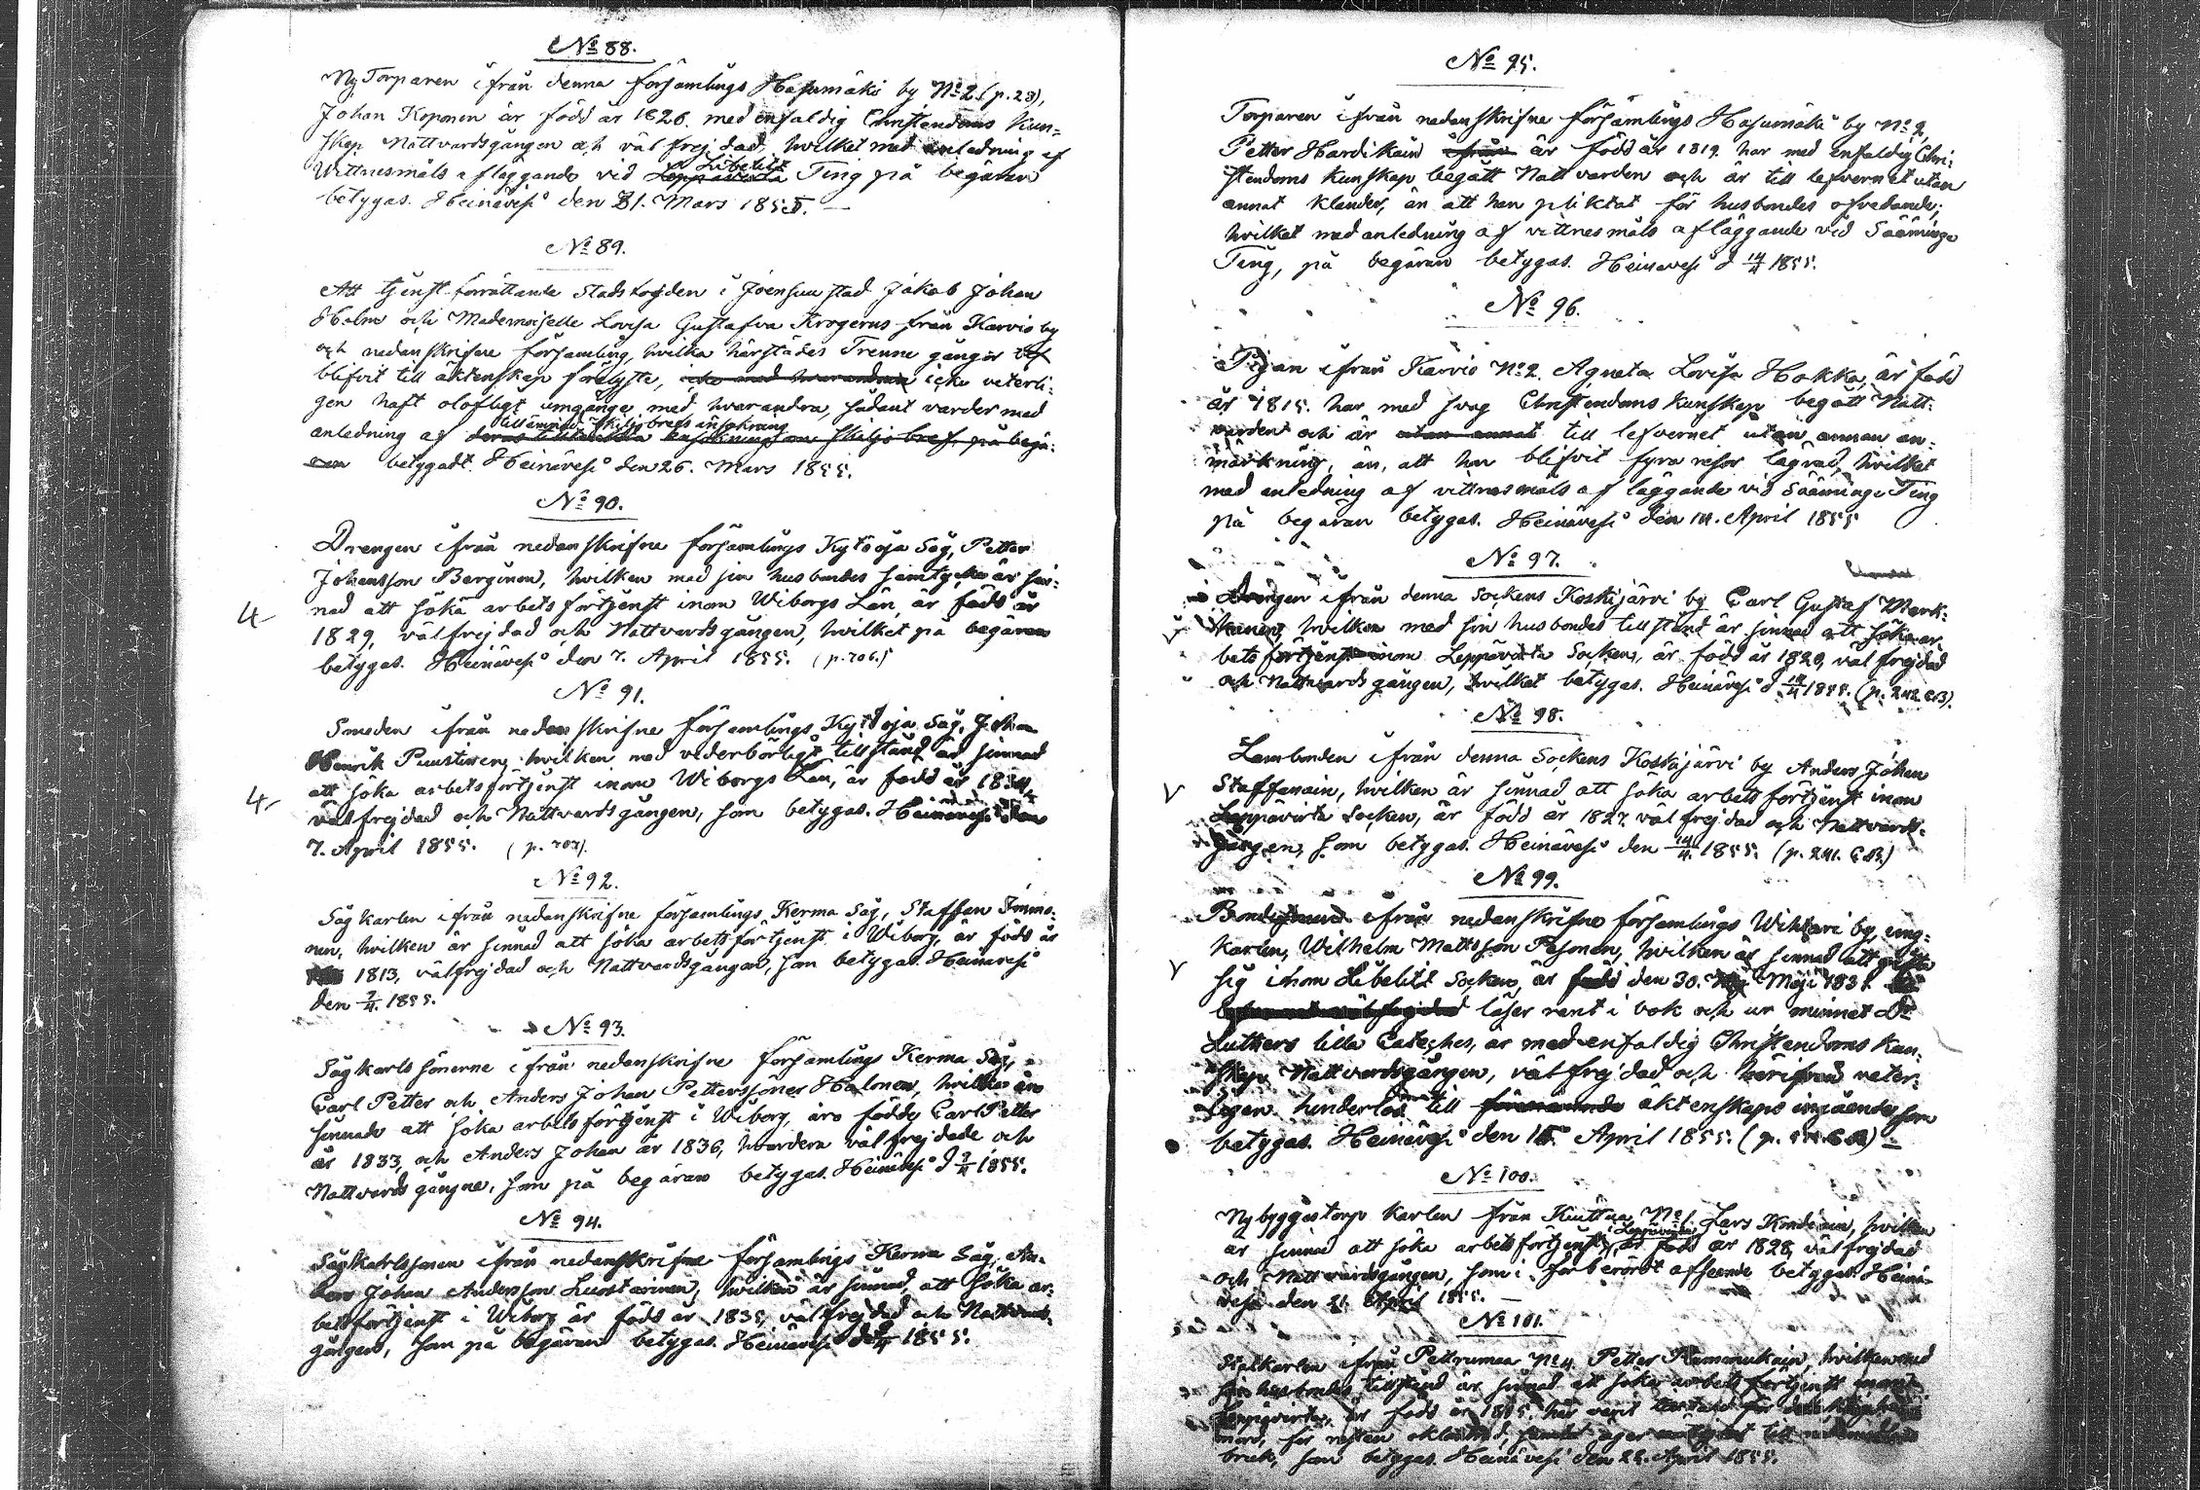 No 88.
Ny Torparen ifrån denna församlings Hasumäki by No 2 (p. 23),
Johan Koponen är född år 1826 med enfaldig Christendoms Kun-
skap Nattvardsgången och väl frejdad, hvilket med anledning af
Libelits
Wittnesmåls afläggande vid Leppävirta Ting på begäran
betygas. Heinävesi den 31. Mars 1855. —
No 89.
Att tjenst förrättande Stadsfogden i Joensuu stad Jakob Johan
Holm och Mademoiselle Lovisa Gustafva Krogerus från Karvio by
och nedanskrifne församling, hvilka härstädes Trenne gånger
blifvit till äktenskap förelyste, icke med hvarandra icke veterli-
gen haft olofligt umgänge med hvarandra, sådant varder med
tillämnad skiljobrefs ansökning
anledning af deras ansökning om skiljobref, på begä-
ran betygadt. Heinävesi den 26. Mars 1855.
No 90.
Drengen ifrån nedanskrifne församlings Kytöoja Såg, Petter
Johansson Barginen, hvilken med sin husbondes samtycke är sin-
nad att söka arbetsförtjenst inom Wiborgs Län, är född år
4
1829, välfrejdad och Nattvardsgången, hvilket på begäran
betygas. Heinävesi den 7. April 1855. (p. 706.)
No 91.
Smeden ifrån nedanskrifne församlings Kytöoja Såg, Johan
Henrik Puustinen, hvilken med vederbörligt tillstånd är sinnad
att söka arbetsförtjenst inom Wiborgs Län, är född år 1834,
4.
välfrejdad och Nattvardsgången, som betygas. Heinävesi den
7. April 1855. (p. 707).
No 92.
Sågkarlen ifrån nedanskrifne församlings Kerma Såg, Staffan Immo-
nen, hvilken är sinnad att söka arbetsförtjenst i Wiborg, är född år
1813, välfrejdad och Nattvardsgången, som betygas. Heinävesi
den 7/4. 1855.
No 93.
Sågkarlssönerne ifrån nedanskrifne församlings Kerma Såg,
Carl Petter och Anders Johan Petterssöner Halonen, hvilka äro
sinnade att söka arbetsförtjenst i Wiborg, äro födde, Carl Petter
år 1833, och Anders Johan år 1836, hvardera välfrejdade och
Nattvardsgångne, som på begäran betygas. Heinävesi d 7/4 1855.
No 94.
Sågkarlssonen ifrån nedanskrifne församlings Kerma Såg, An-
ders Johan Andersson Luostarinen, hvilken är sinnad att söka ar-
betsförtjenst i Wiborg är född år 1835, välfrejdad och Nattvards-
gången, som på begäran betygas. Heinävesi 1855.
No 95.
Torparen ifrån nedanskrifne församlings Hasumäki by No 2,
Petter Hardikain ifrån är född år 1819. har med enfaldig Chri-
stendoms Kunskap begått Nattvarden och är till lefvernet utan
annat klander, än att han pliktat för husbondes ofredande;
hvilket med anledning af vittnesmåls afläggande vid Sääminge
Ting, på begäran betygas. Heinävesi d 14/4 1855.
No 96.
Pigan ifrån Karvio No 2. Agneta Lovisa Hokka, är född
år 1815. har med svag Christendoms Kunskap begått Natt-
varden och är utan annat till lefvernet utan annan an-
märkning, än, att hon blifvit fyra resor lägrad, hvilket
med anledning af vittnesmåls afläggande vid Sääminge Ting
på begäran betygas. Heinävesi den 14. April 1855
No 97.
Drengen ifrån denna Sockens Koskijärvi by Carl Gustaf Mark-
kanen, hvilken med sin husbondes tillstånd är sinnad att söka ar-
bets förtjenst inom Leppävirta Socken, är född år 1829, välfrejdad
och Nattvardsgången, hvilket betygas. Heinävesi d 14/4 1855. (p. 242 CB).
No 98.
Landbonden ifrån denna Sockens Koskijärvi by Anders Johan
V
Staffanain, hvilken är sinnad att söka arbetsförtjenst inom
Leppävirta Socken, är född år 1827. välfrejdad och Nattvards-
gången, som betygas. Heinävesi den 14/4. 1855. (p. 241. CB.)
No 99.
ifrån nedanskrifne församlings Wihtari by, ung-
karlen, Wilhelm Mattsson Pesonen, hvilken är sinnad att gifta
V
sig inom Libelits Socken, är född den 30. Maji 1831.
läser rent i bok och ur minnet Dr
Luthers lilla Cateches, är med enfaldig Christendoms Kun-
skap Nattvardsgången, välfrejdad och härifrån veter-
ligen hinderlös till äktenskaps ingående, som
betygas. Heinävesi den 15. April 1855.
No 100.
Nybyggestorp karlen från Kuittua No 1 Lars hvilken
i Leppävirta
är sinnad att söka arbetsförtjenst, är född år 1828, välfrejdad
och Nattvardsgången, som i förberört afseende betygas. Heinä-
vesi den 21. April 1855. —
No 101.
Petrumaa No 4. Petter hvilken med
sin husbondes tillstånd är sinnad att söka arbets förtjenst inom
Leppävirta, är född år
för resten oklandrad,
bruk, som betygas. Heinävesi den April 1855.